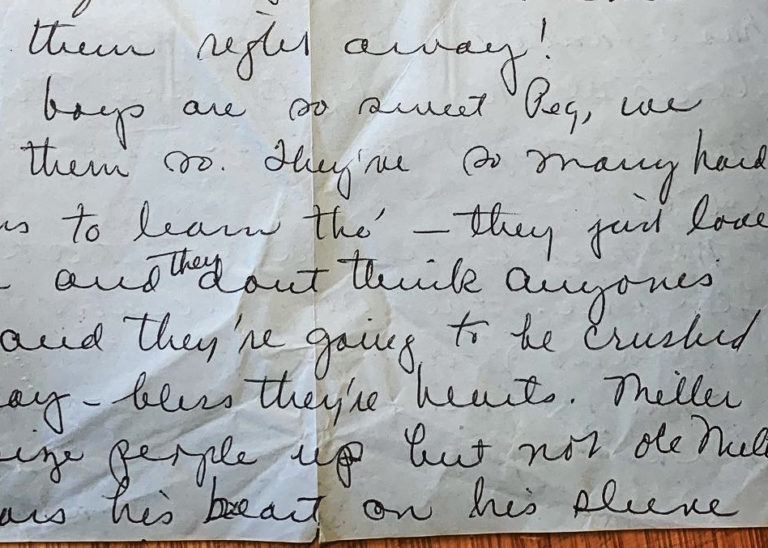 them right away!
boys are so sweet Peg, we
them so. They've so many hard
to learn tho' – they just love
and they dont think anyones
and they're going to be crushed
– bless they're hearts. Miller
people up but not ole
his heart on his sleeve